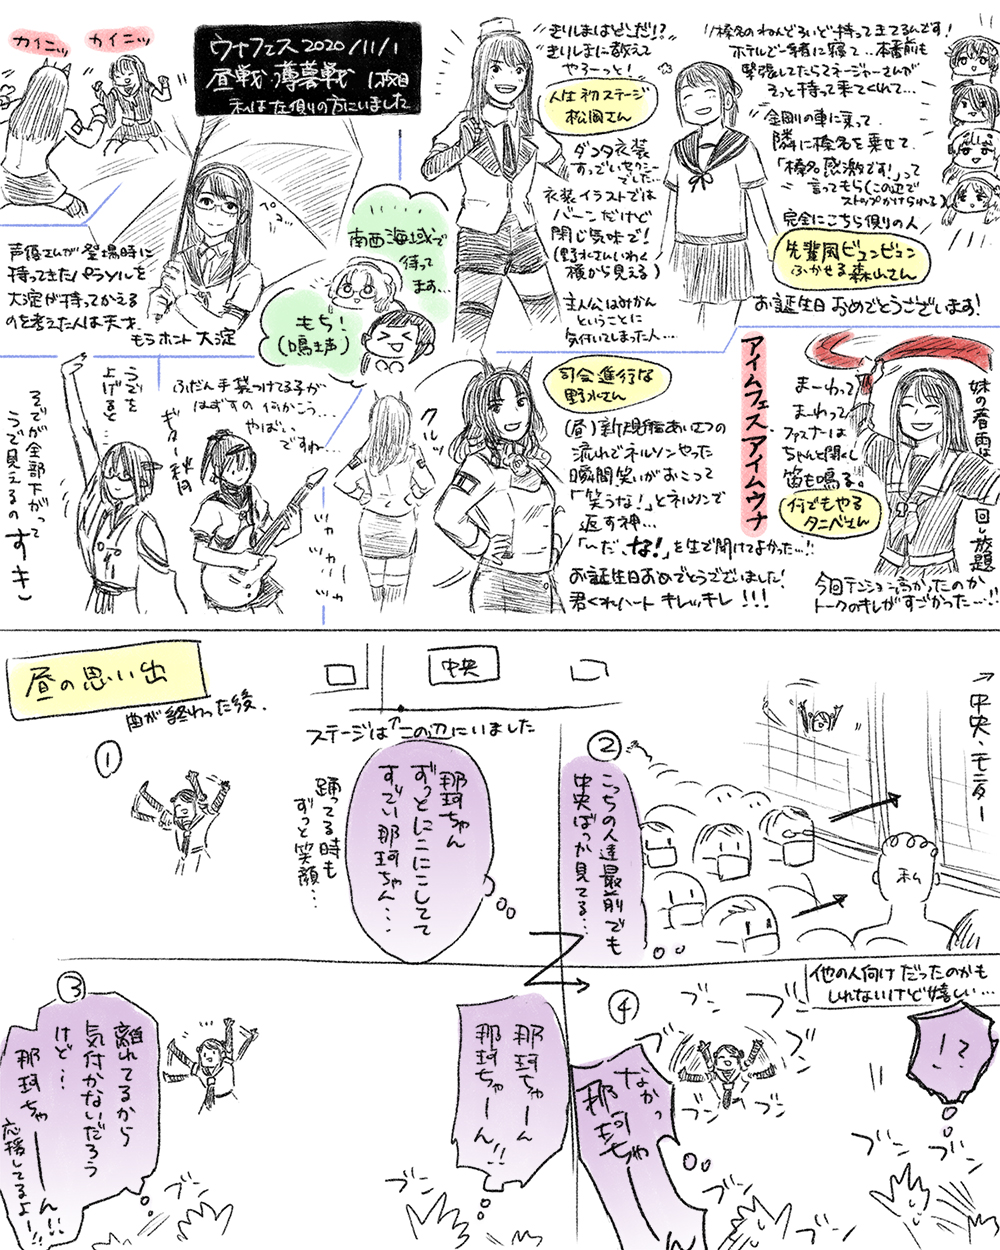 カイニッ
カイニッ
ウナフェス2020/11/1
昼戦 薄暮戦 1枚目
私は左側の方にいました
声優さんが登場時に
持ってきたパラソルを
大淀が持ってかえる
のを考えた人は天才。
もうホント大淀
南西海域で
待って
ます…
もち!
(鳴き声)
きりしまはどこだ!?
きりしまに教えて
やろーっと!
人生初ステージ
松岡さん
衣装イラストでは
バーンだけど
閉じ気味で!
(野水さんいわく
横から見える)
主人公はみかん
ということに
気付いてしまった人…
ホテルで一緒に寝て…本番前も
緊張してたらマネージャーさんが
そっと持って来てくれて…
金剛の車に乗って、
隣に榛名を乗せて、
「榛名感激です!」って
言ってもらく(この辺で
ストップかけられる)
完全にこちら側の人
先輩風ビュンビュン
ふかせる森山さん
お誕生日おめでとうございます!
うでを
上げると…
そでが全部下がって
うで見えるの すき
ふだん手袋つけてる子が
はずすの何かこう…
やばい
ですね…
ギター秋月
クルッ
ツカ
ツカー
ツカー
司会進行な
野水さん
(昼)新規艦あいさつの
流れでネルソンやった
瞬間笑いがおこって
「笑うな!」とネルソンで
返す神…
「〜だ、な!」を生で聞けてよかった…!!
お誕生日おめでとうございました!
君くれハート キレッキレ!!!
アイムフェスアイムウナ
まーわって
まーわって
ファスナーは
ちゃんと開くし
笛も鳴る。
何でもやる
タニベさん
妹の春雨は
回し放題
今回テンション高かったのか
トークのキレがすごかった…!!
昼の思い出
曲が終わった後、
中央
ステージは↑この辺にいました
①
那珂ちゃん
ずっとにこにこしてて
すごい那珂ちゃん…
踊ってる時も
ずっと笑顔…
②
こっちの人達最前でも
中央ばっか見てる…
→中央、モニター
私
③
離れてるから
気付かないだろう
けど…
那珂ちゃーーん!!
応援してるよ!!
那珂ちゃーん
那珂ちゃーん!!
ブン
④
他の人向けだったのかも
しれないけど嬉しい…
!?
なかっ
那珂ちゃ——
ブン
ブン
ブン
ブン
ブン
ブン
ブン